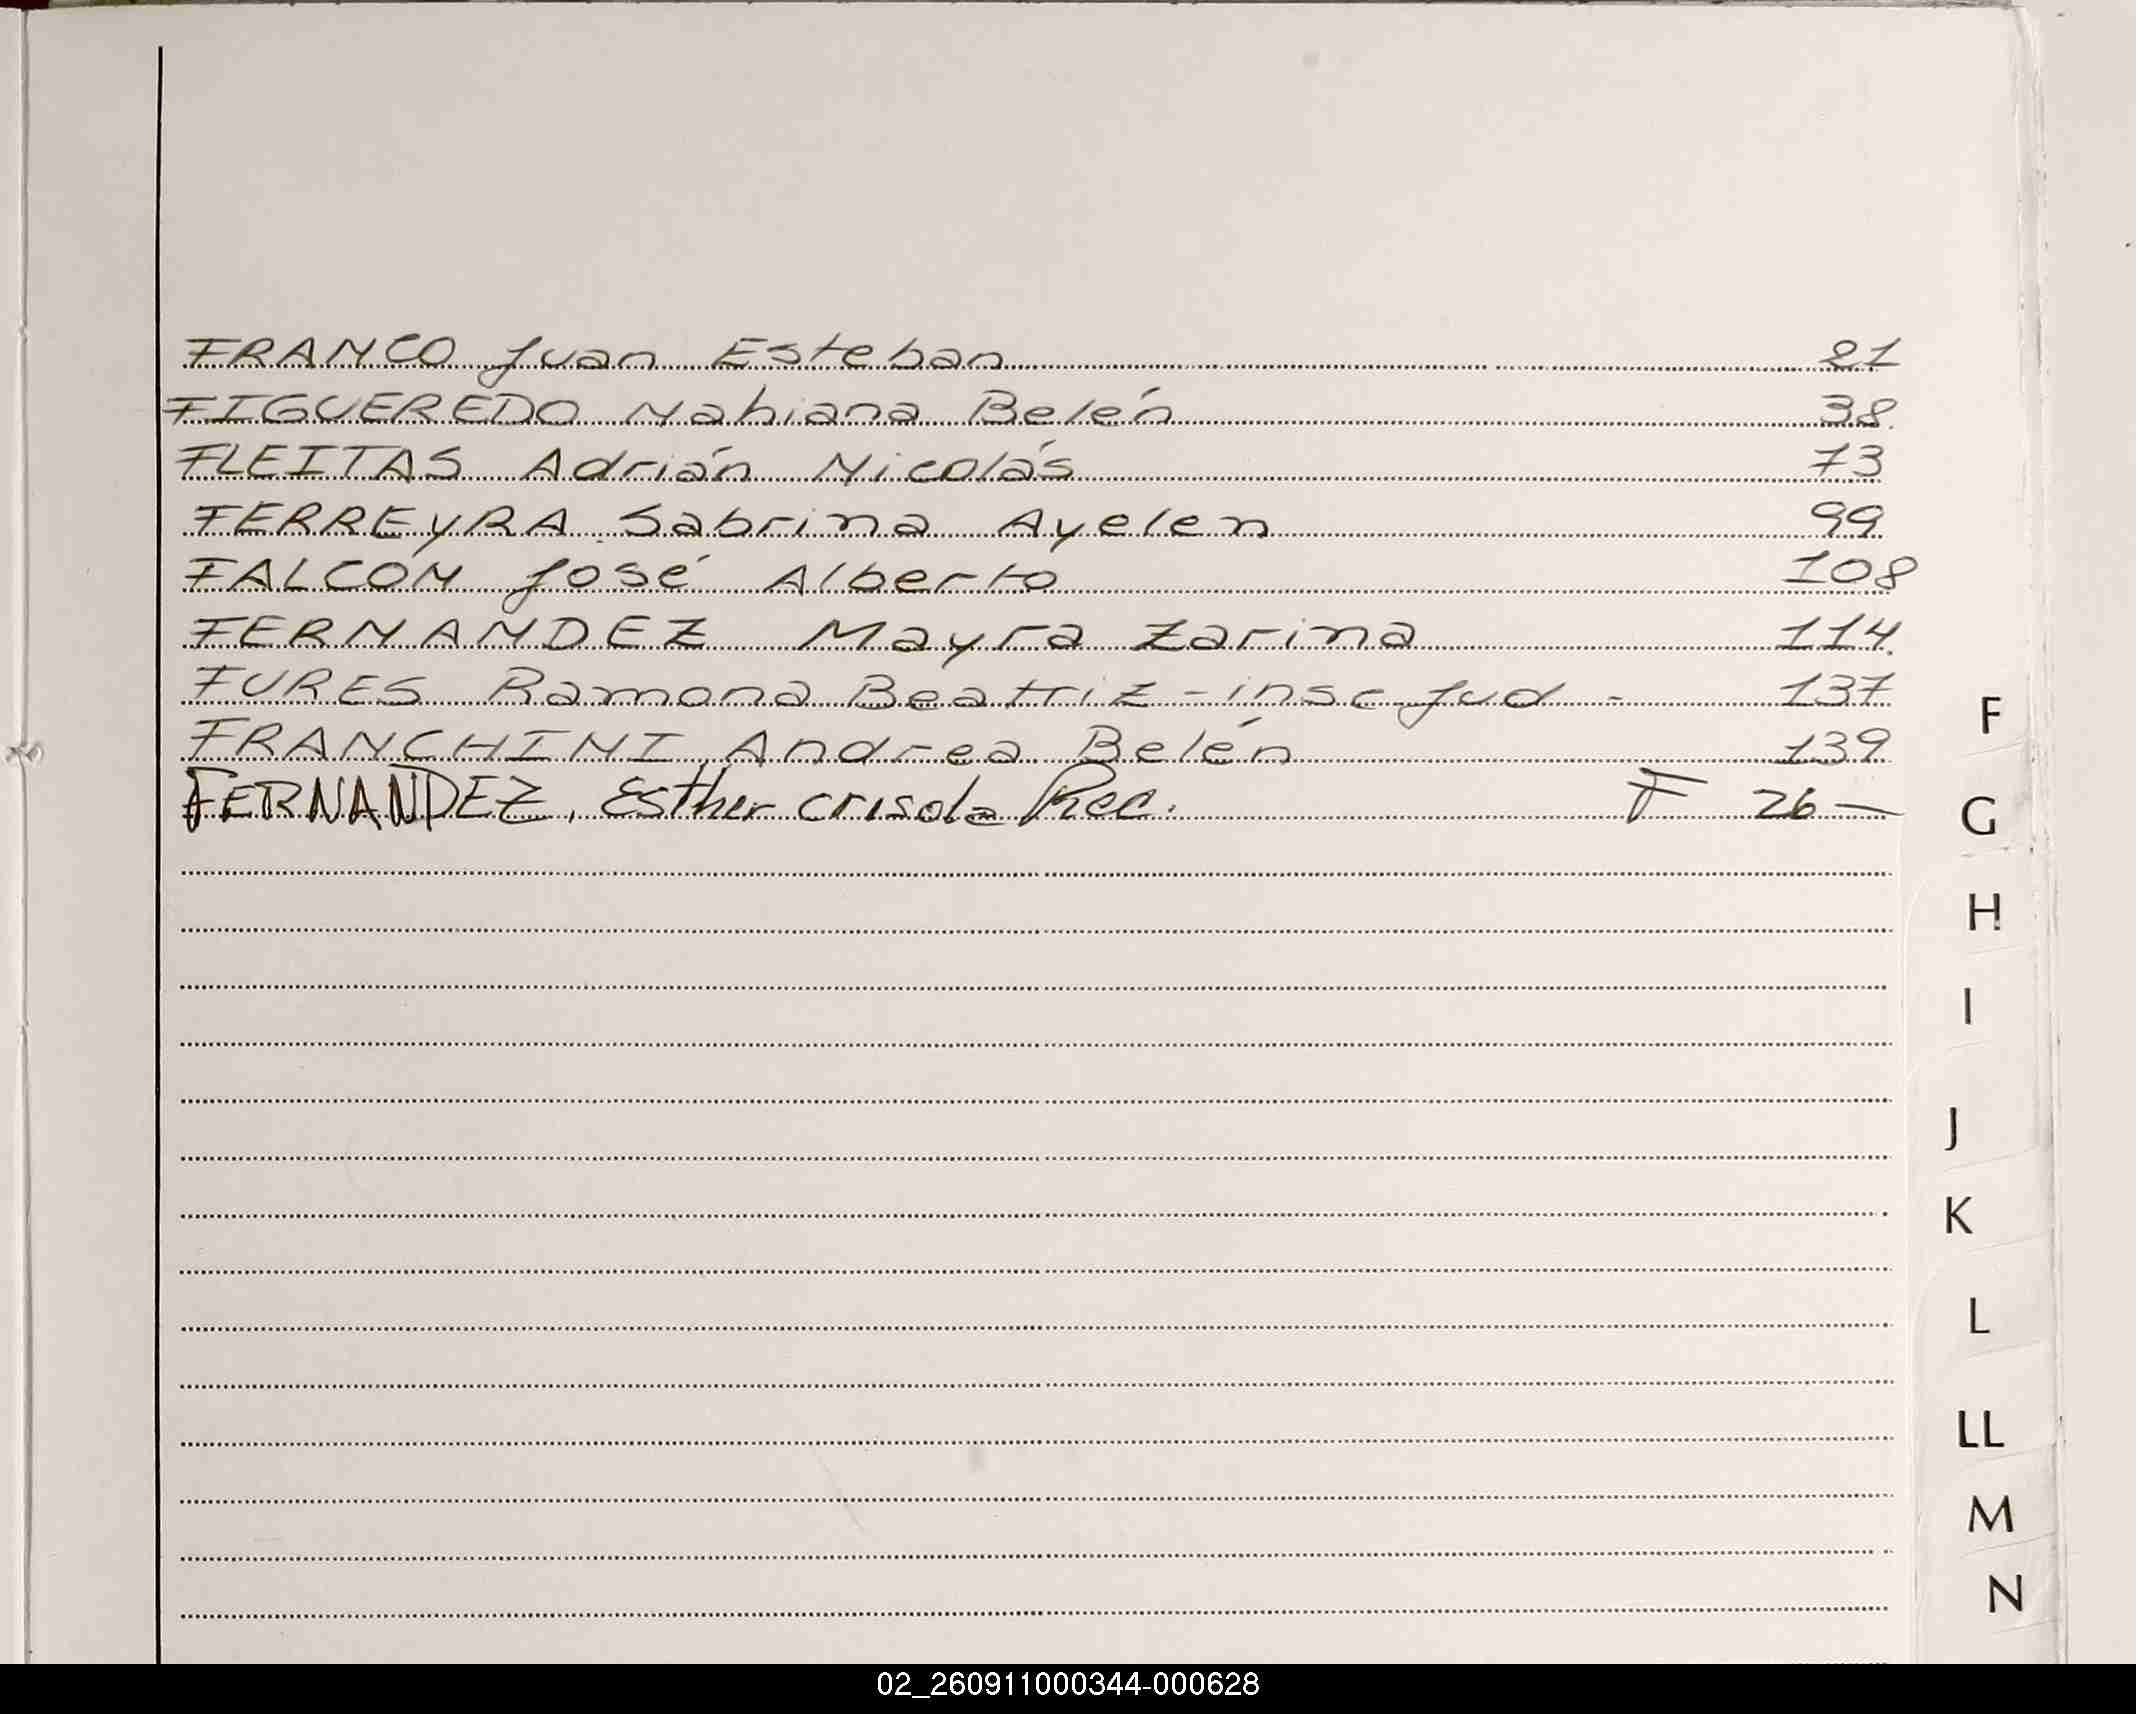 FRANCO Juan Esteban 21
FIGUEREDO Nahiana Belén 38
FLEITAS Adrián Nicolás 73
FERREyRA Sabrina Ayelen 99
FALCON José Alberto 108
FERNANDEZ Mayra Zarina 114
FURES Ramona Beatriz - insc Jud - 137
FRANCHINI Andrea Belén 139
FERNANDEZ, Esther crisola Rec. F 26 —
F
G
H
I
J
K
L
LL
M
N
02_260911000344-000628